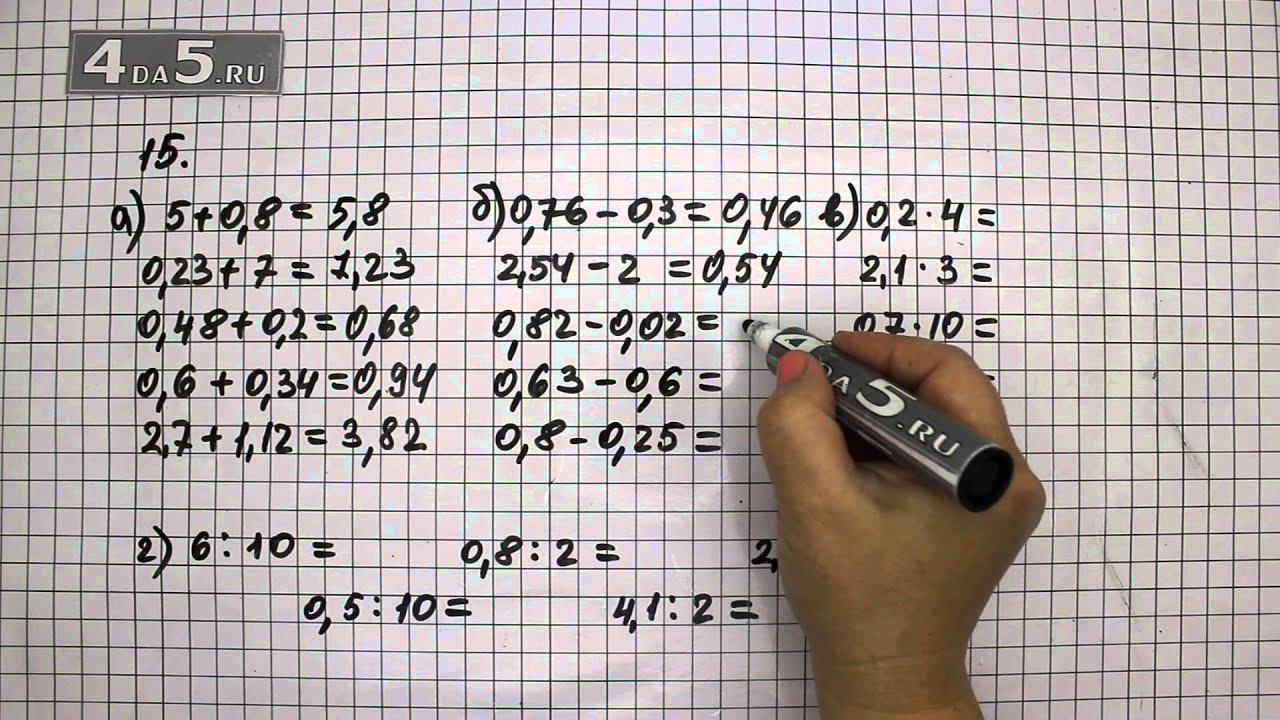 4DA5.RU
15.
а) 5+0,8=5,8
0,23+7=7,23
0,48+0,2=0,68
0,6+0,34=0,94
2,7+1,12=3,82
б) 0,76-0,3=0,46
2,54-2=0,54
0,82-0,02=
0,63-0,6=
0,8-0,25=
в) 0,2·4=
2,1·3=
0,7·10=
=
г) 6:10= 0,8:2= 2,
0,5:10= 4,1:2=
4DA5.RU